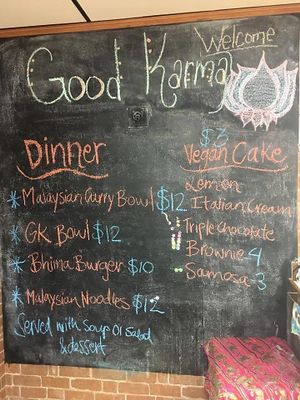 Welcome
Good Karma
Dinner
* Malaysian Curry Bowl $12
* GK Bowl $12
* Bhima Burger $10
* Malaysian Noodles $12
Served with Soup or Salad
& dessert
$3
Vegan Cake
Lemon
Italian Cream
Triple Chocolate
Brownie 4
Samosa 3